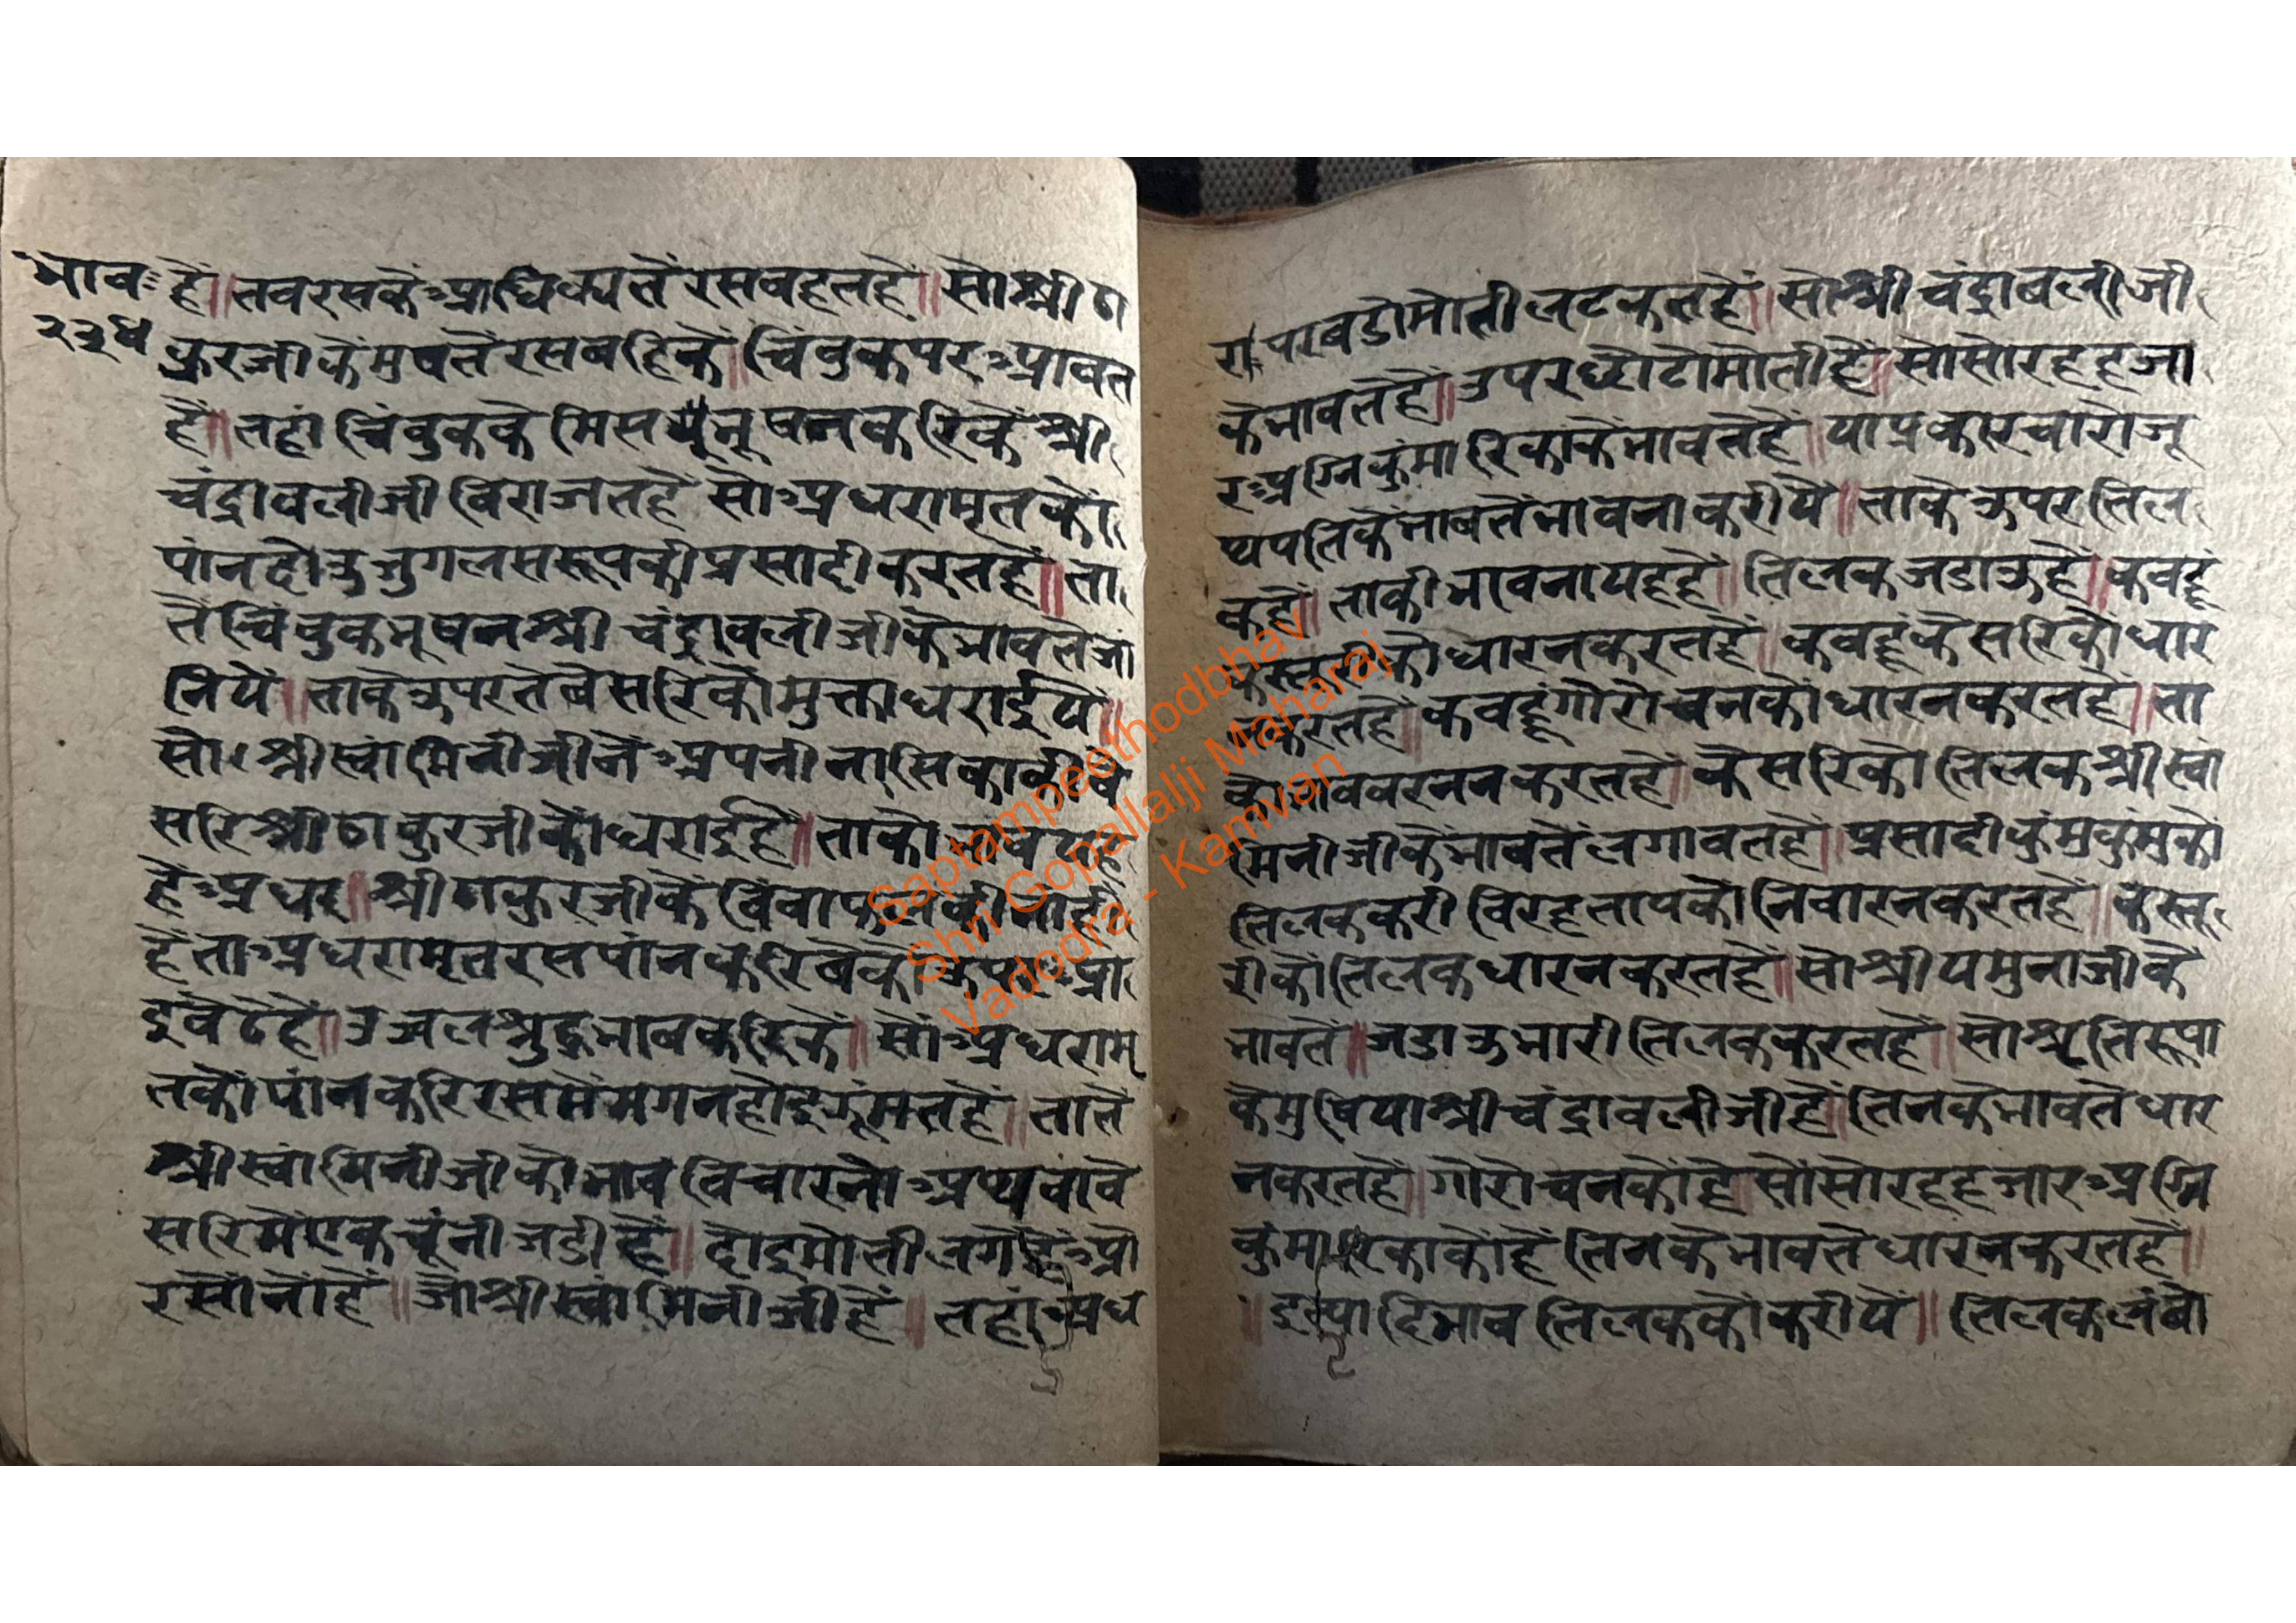 भाव
२३५
हैं॥तवरसकेंआधिक्यतेंरसवहतहें॥सोश्रीठा
कुरजीकेंमुषतेंरसबहिकें॥चिंबुकपरआवत
हैं॥तहां चिंबुककें मिस भूषनकरिकें श्री
चंद्रावलीजी विराजतहें सोअधरामृतकों
पांनदोऊजुगलसरूपकीप्रसादीकरतहें॥ता
तेंचिंबुकभूषनश्री चंद्रावलीजीकेभावतेंजां
नियें॥ताकेऊपरतेंबेसरिकोंमुक्ताधराईयें॥
सोश्रीस्वामिनीजीनेंअपनीनासिकाकीबे
सरिश्रीठाकुरजीकोंधराईहैं॥ताकों
हेंअधर॥श्रीठाकुरजीकें बिंबाफलकीनांई
हेंताअधरामृतरसपांनकरिबेकों आ
इबेठेहैं॥उज्वलश्रुद्धभावकरिकें॥सोअधरामृ
तकोंपांनकरिरसमेंमगनहोइझूंमतहैं॥तातें
श्रीस्वामिनीजीकोंभाव विचारनोंअथवाबे
सरिमेंएकचूंनीजडी हें॥दोइमोतीलगेहेंओ
रसोंनोंहें॥जोश्रीस्वामिनीजीहें॥तहांअध
रापरबडोमोतीलटकतहें॥सोश्रीचंद्रावलीजी
केभावतेहें॥उपरछोटोमोतीहें॥सोसोरहहजा
रअग्निकुंमारिकाकेंभावतेहें॥याप्रकारचारोजू
थपतिकेंभावतेंभावनाकरीयें॥ताकेऊपरतिल
कहें॥ताकीभावनायहहें॥तिलकजडाऊहें॥कबहूं
कस्तूरीकोधारनकरतहें॥कबहूंकेसरिकोधार
नकरतहें॥कबहूंगोरोचनकोंधारनकरतहें॥ता
कोभाववरननकरतहें॥केसरिकोतिलकश्रीस्वा
मिनीजीकेंभावतेंलगावतहें॥प्रसादीकुंमकुंमको
तिलककरीविरहतापकोंनिवारनकरतहें॥कस्तू
रीकोंतिलकधारनकरतहें॥सोश्रीयमुनाजीकें
भावतें॥जडाऊभारीतिलककरतहें॥सोश्रुतिरूपा
केंमुषियाश्रीचंद्रावलीजीहें॥तिनकेभावतेधार
नकरतहें॥गोरोचनकोंहें॥सोंसोरहहजारअग्नि
कुंमारिकाकोंहें तिनकेभावतेधारनकरतहें॥
॥इत्याहिभावतिलककोंकरीयें॥तिलकलंबो
Saptampeethodbhav
Shri Gopallalji Maharaj
Vadodra - Kamvan